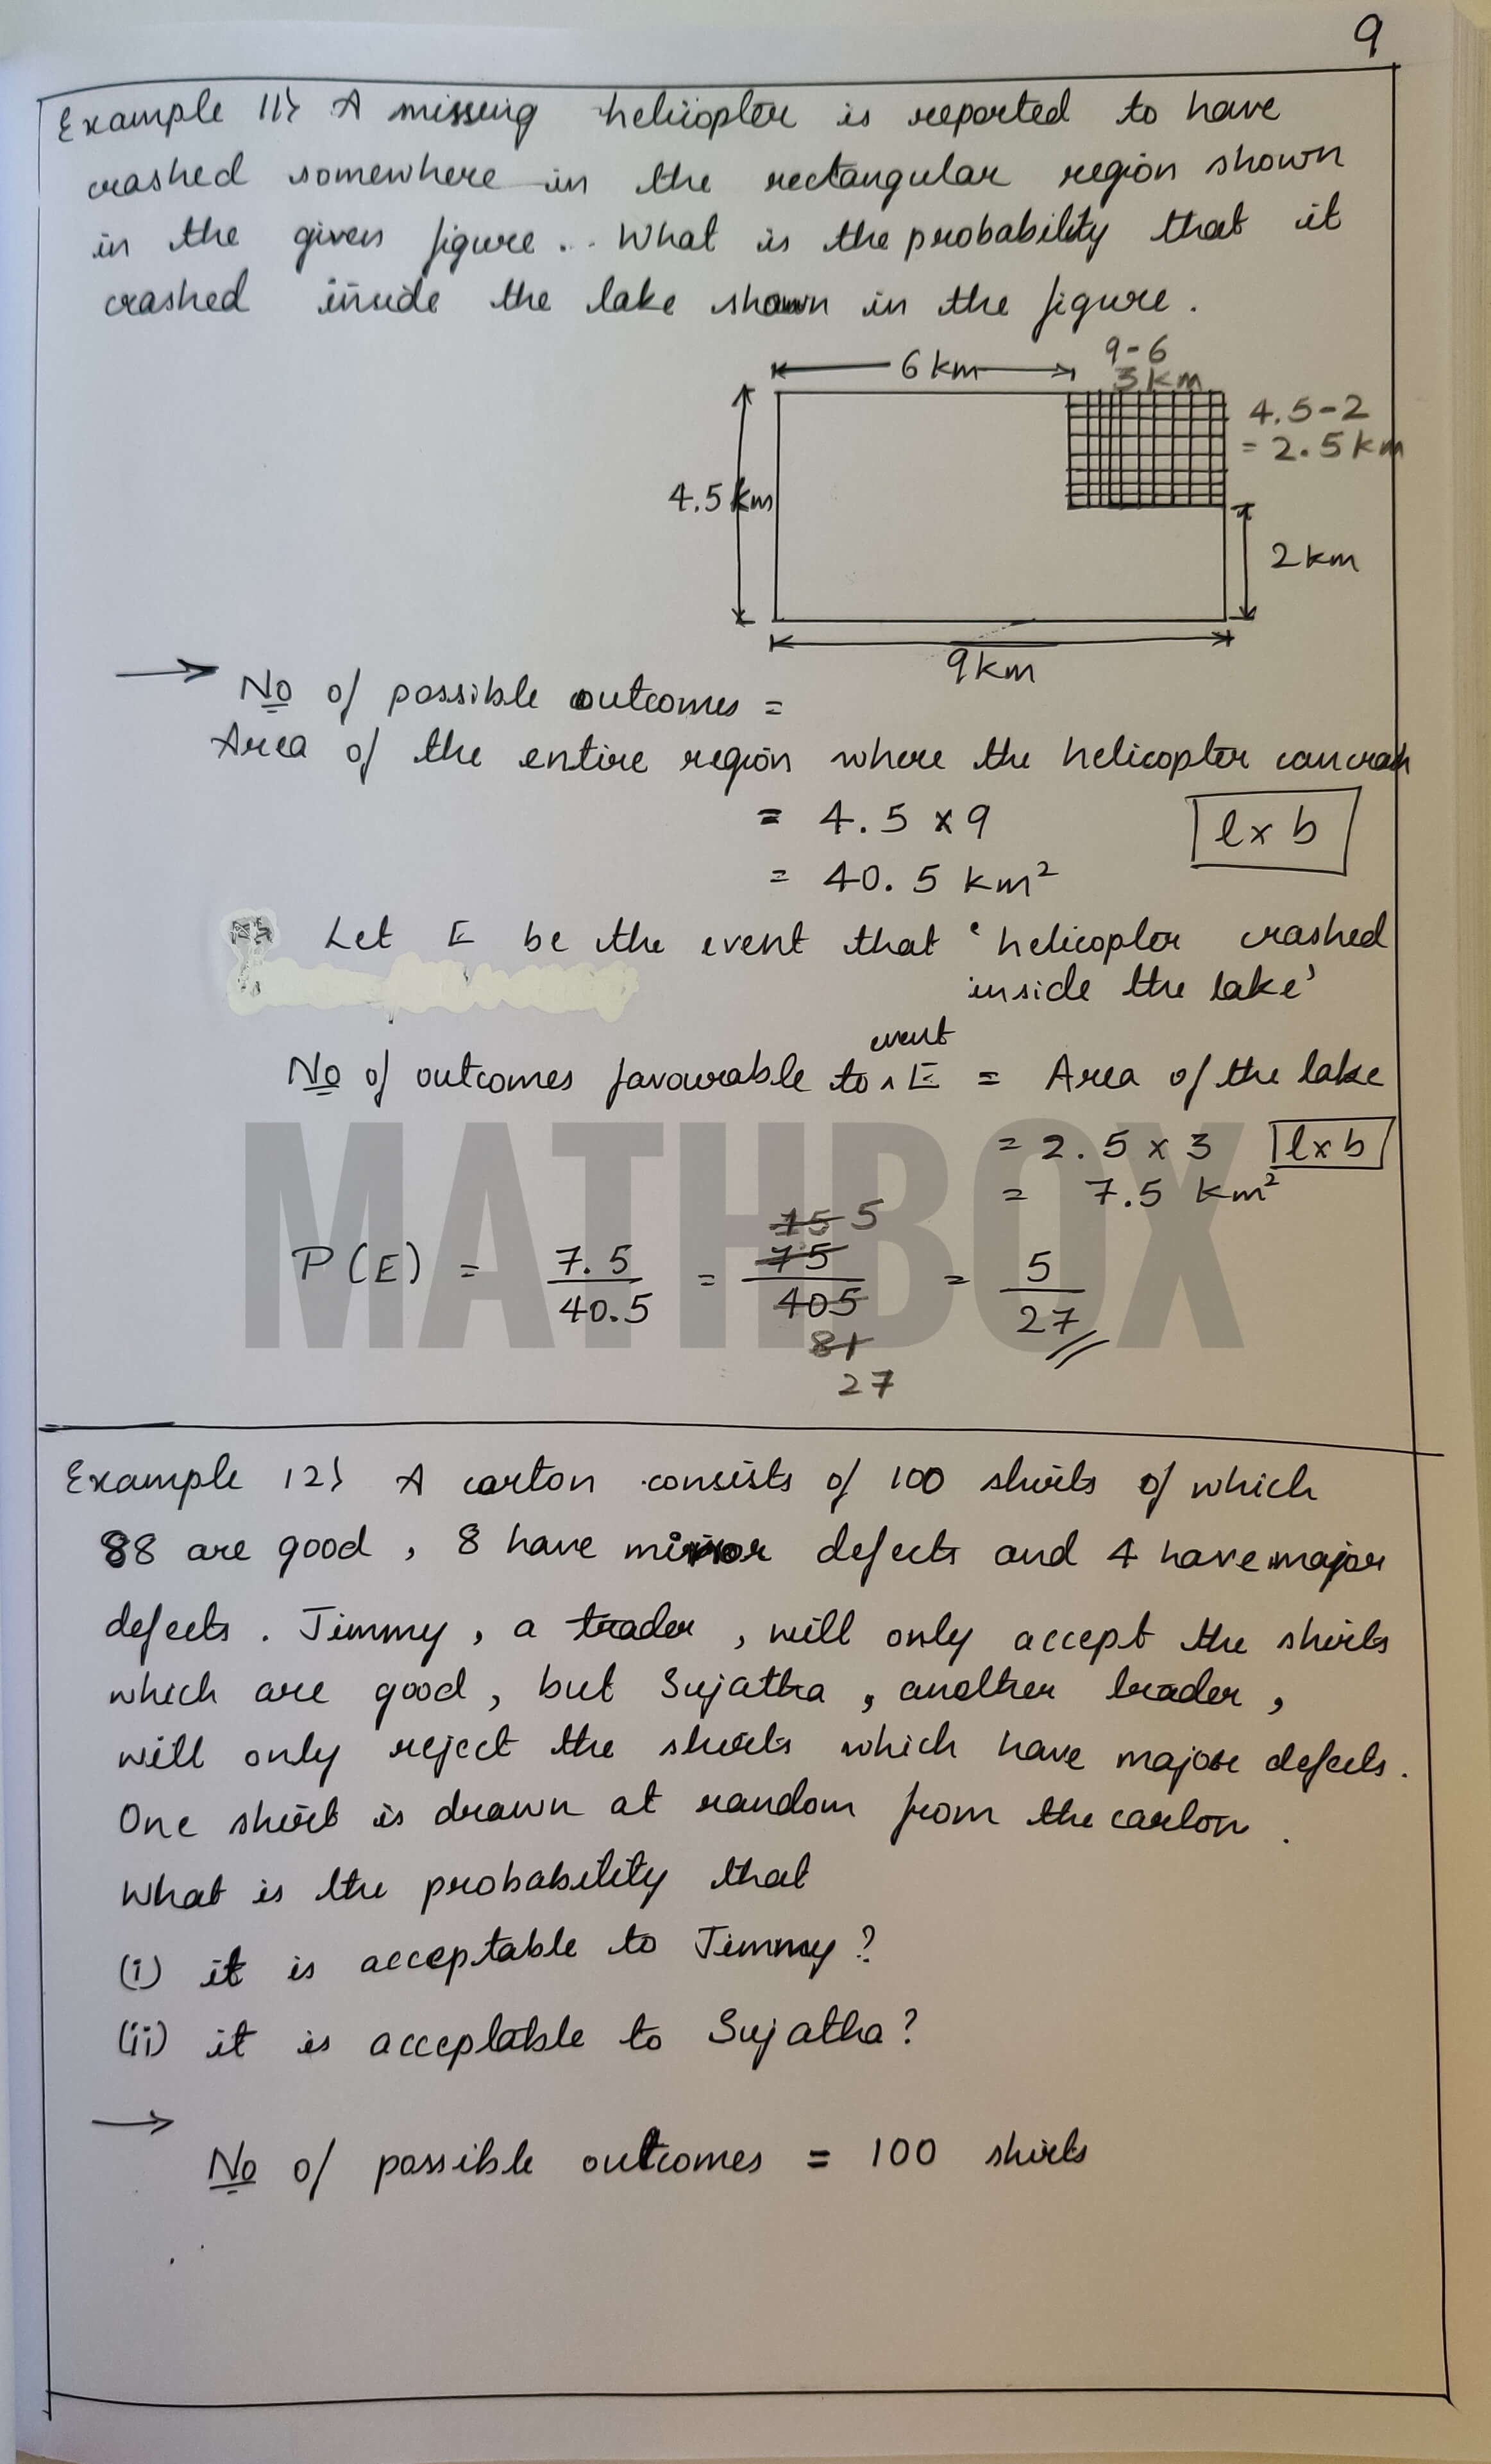 9
Example 11} A missing helicopter is reported to have
crashed somewhere in the rectangular region shown
in the given figure... What is the probability that it
crashed inside the lake shown in the figure.
6 km
9-6
3 km
4.5-2
= 2.5 km
4.5 km
2 km
9 km
→ No of possible outcomes =
Area of the entire region where the helicopter can crash
= 4.5 x 9
l x b
= 40.5 km²
Let E be the event that ‘helicopter crashed
inside the lake’
event
No of outcomes favourable to ^ E = Area of the lake
= 2.5 x 3 l x b
= 7.5 km²
MATHBOX
15 5
P(E) = 7.5/40.5 = 75/405 = 5/27
81
27
Example 12} A carton consists of 100 shirts of which
88 are good, 8 have minor defects and 4 have major
defects. Jimmy, a trader, will only accept the shirts
which are good, but Sujatha, another trader,
will only reject the shirts which have major defects.
One shirt is drawn at random from the carton.
What is the probability that
(i) it is acceptable to Jimmy?
(ii) it is acceptable to Sujatha?
→
No of possible outcomes = 100 shirts